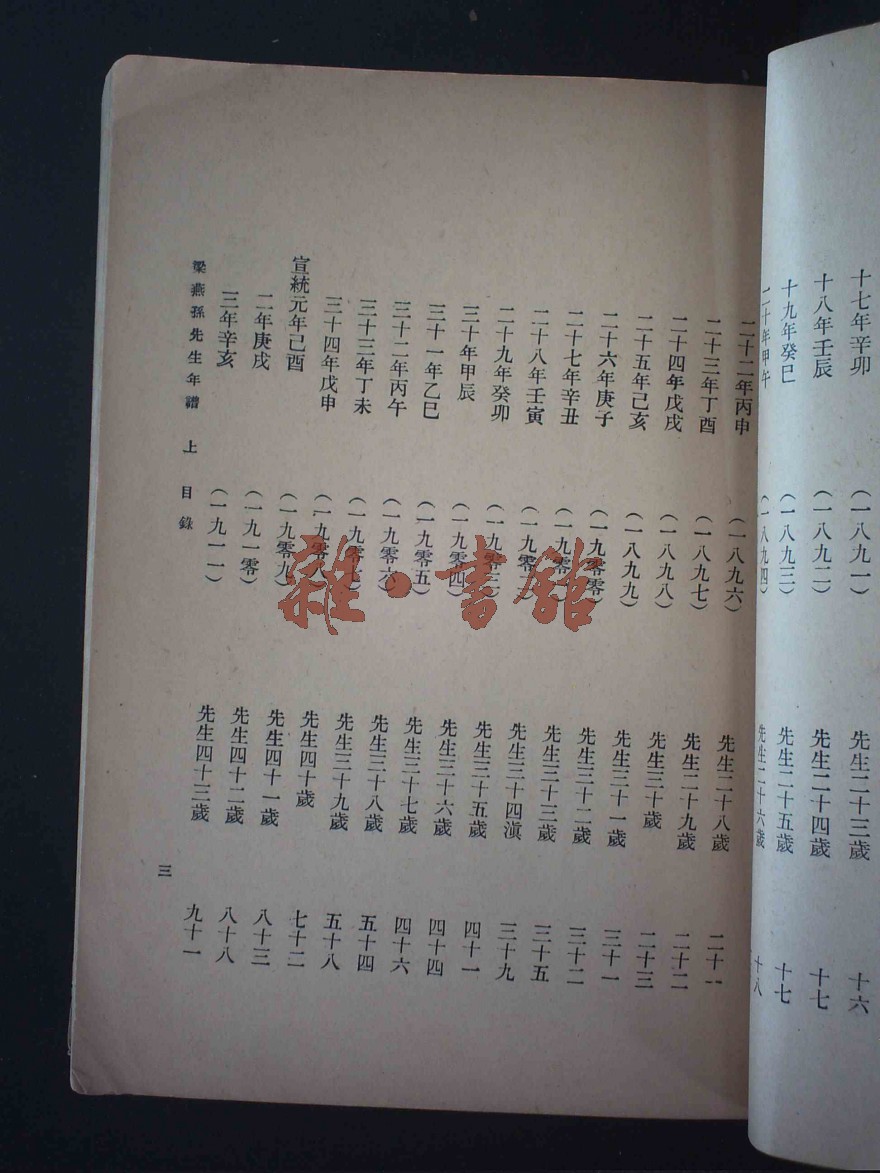 十七年辛卯 (一八九一) 先生二十三歲 十六
十八年壬辰 (一八九二) 先生二十四歲 十七
十九年癸巳 (一八九三) 先生二十五歲 十七
二十年甲午 (一八九四) 先生二十六歲 十八
二十二年丙申 (一八九六) 先生二十八歲 二十一
二十三年丁酉 (一八九七) 先生二十九歲 二十二
二十四年戊戌 (一八九八) 先生三十歲 二十三
二十五年己亥 (一八九九) 先生三十一歲 三十一
二十六年庚子 (一九零零) 先生三十二歲 三十二
二十七年辛丑 (一九零一) 先生三十三歲 三十五
二十八年壬寅 (一九零二) 先生三十四滇 三十九
二十九年癸卯 (一九零三) 先生三十五歲 四十一
三十年甲辰 (一九零四) 先生三十六歲 四十四
三十一年乙巳 (一九零五) 先生三十七歲 四十六
三十二年丙午 (一九零六) 先生三十八歲 五十四
三十三年丁未 (一九零七) 先生三十九歲 五十八
三十四年戊申 (一九零八) 先生四十歲 七十二
宣統元年己酉 (一九零九) 先生四十一歲 八十三
二年庚戌 (一九一零) 先生四十二歲 八十八
三年辛亥 (一九一一) 先生四十三歲 九十一
梁燕孫先生年譜 上 目錄 三
雜·書館